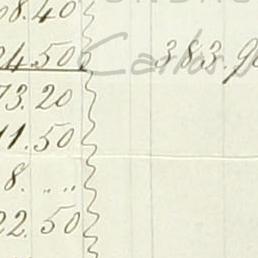 8.40
24.50 383.90
73.20
11.50
8. .. ..
22.50